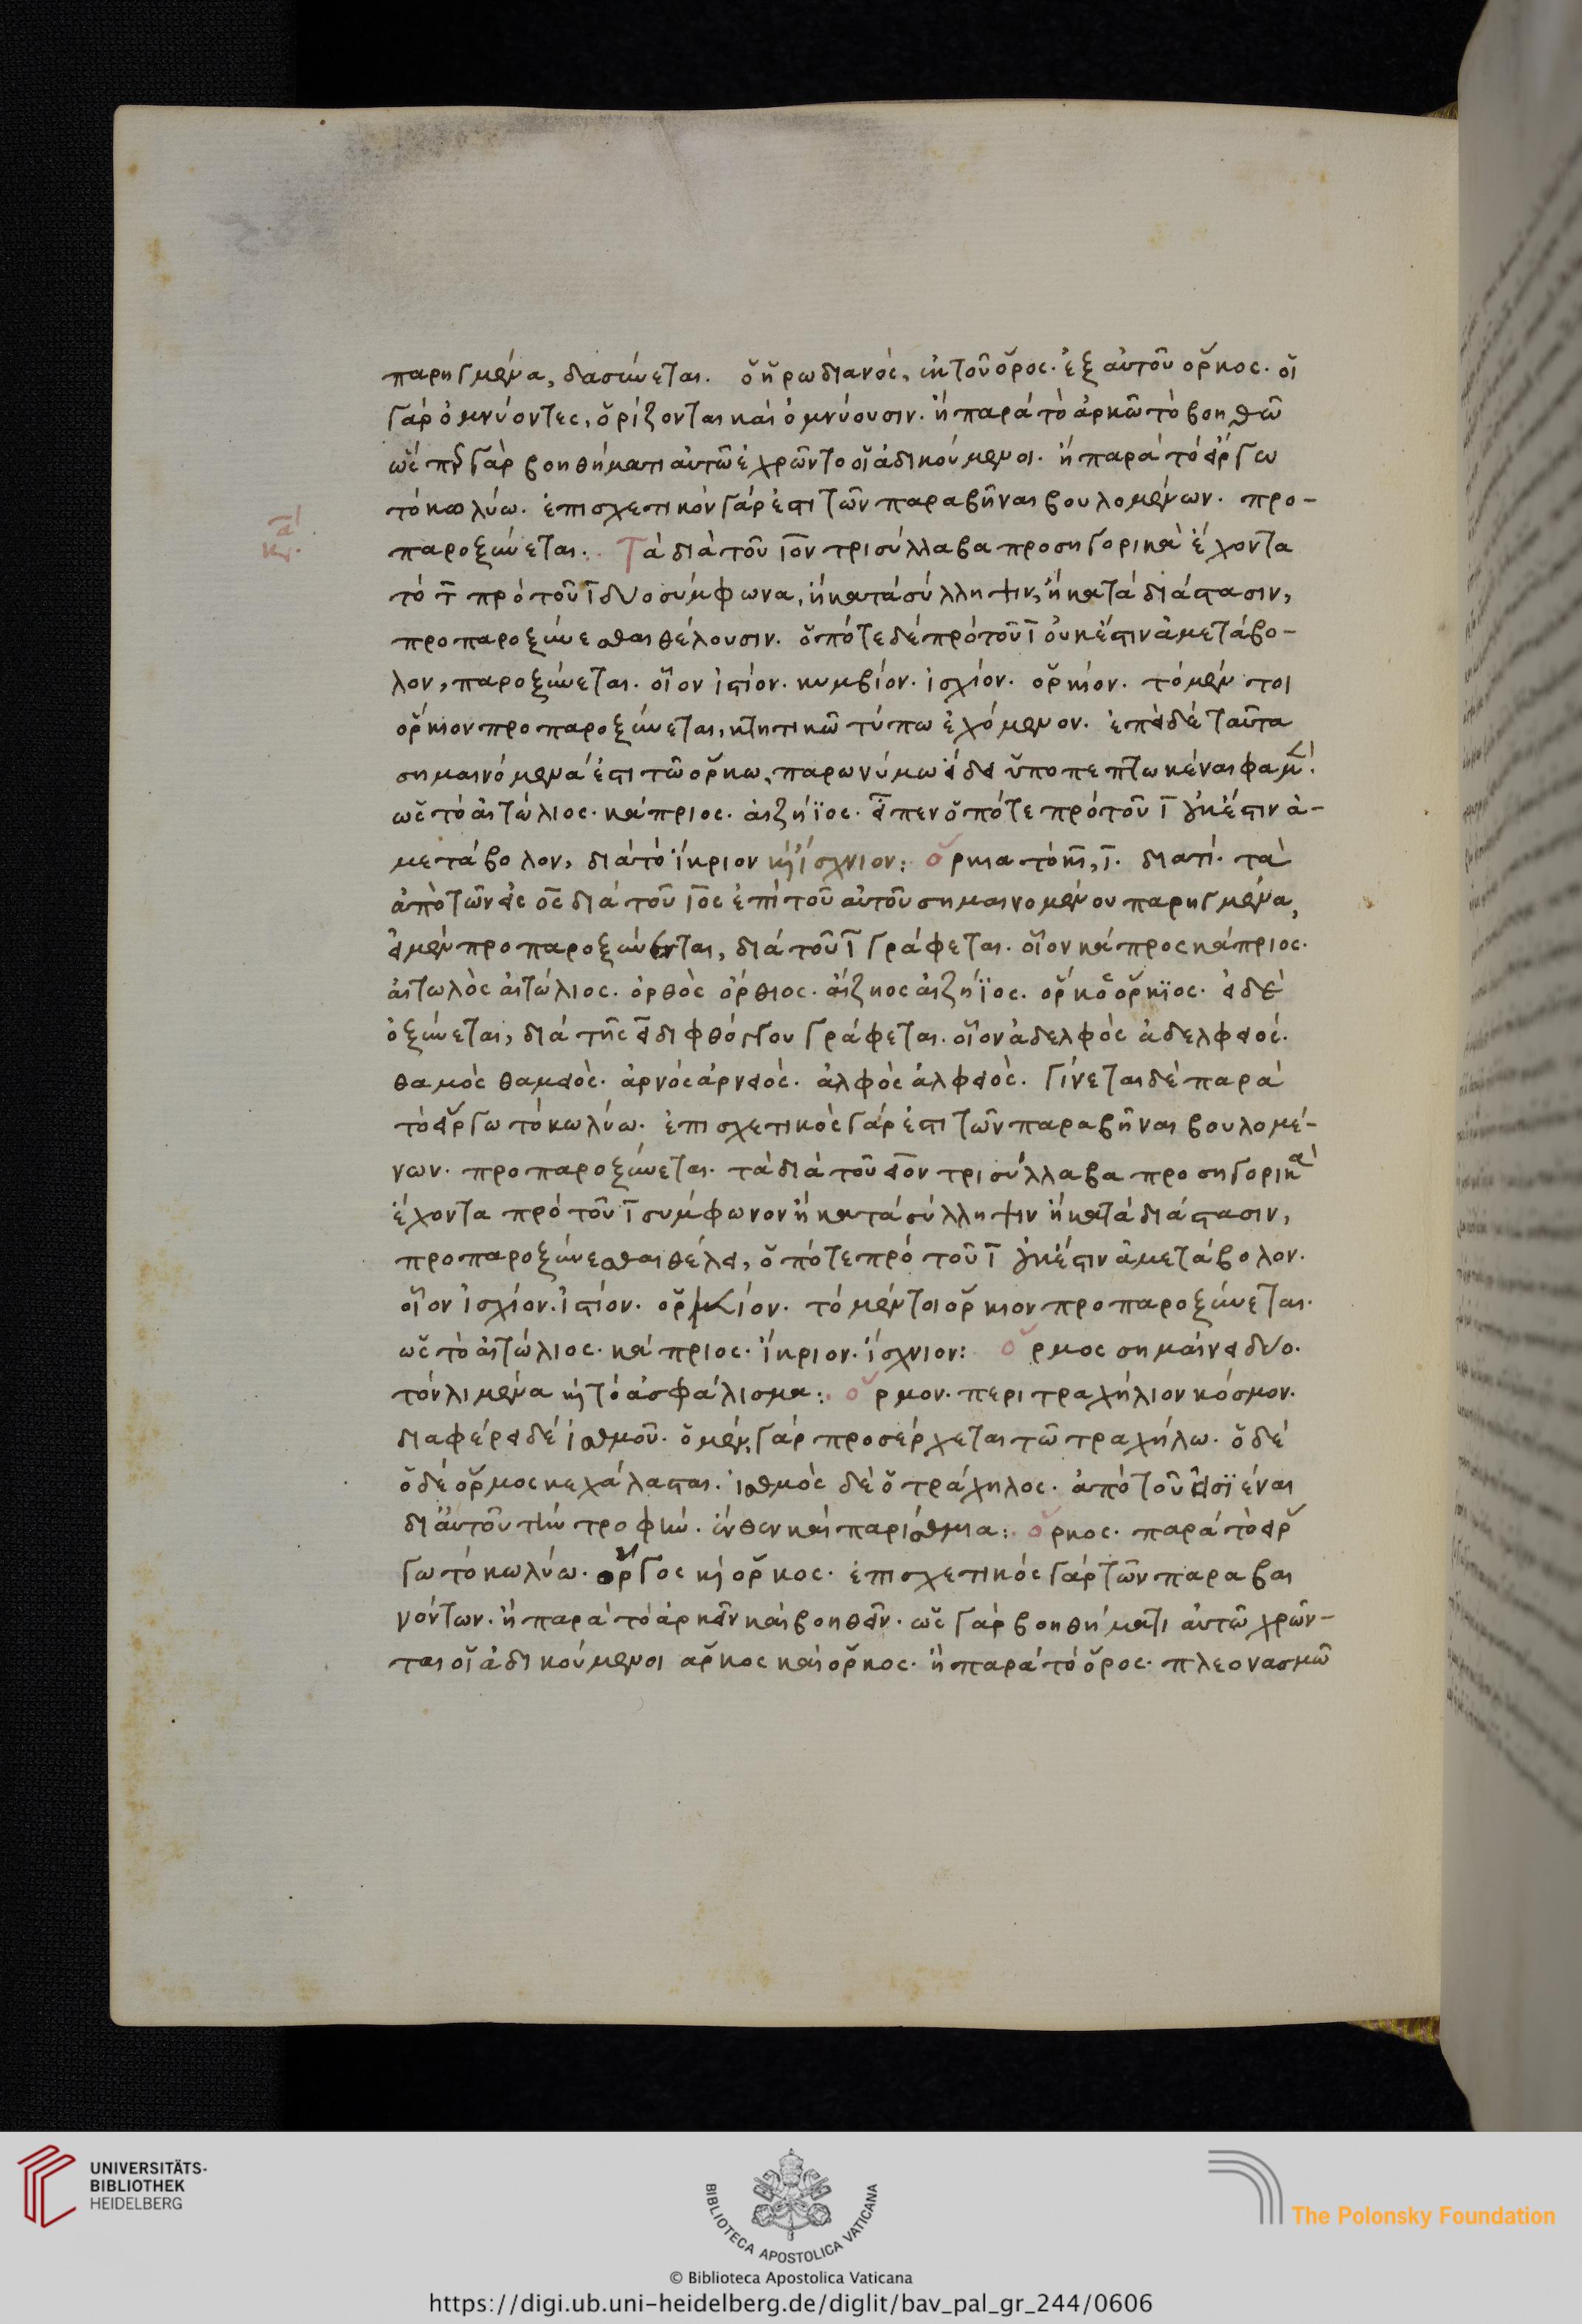 παρηγμένα, δασύνεται. ὁ ἡρωδιανὸς, ἐκ τοῦ ὅρος. ἐξ αὐτοῦ ὅρκος. οἱ
γὰρ ὀμνύοντες, ὁρίζονται καὶ ὀμνύουσιν. ἢ παρὰ τὸ ἀρκῶ τὸ βοηθῶ
γὰρ βοηθήματι αὐτῶ ἐχρῶντο οἱ ἀδικούμενοι. ἢ παρὰ τὸ εἵργω
τὸ κωλύω. ἐπισχετικὸν γάρ ἐστι τῶν παραβῆναι βουλομένων. προ-
παροξύνεται. Τὰ διὰ τοῦ ιον τρισύλλαβα προσηγορικὰ ἔχοντα
τὸ τ πρὸ τοῦ ι δύο σύμφωνα, ἢ κατὰ σύλληψιν, ἢ κατὰ διάστασιν,
προπαροξύνεσθαι θέλουσιν. ὁπότε δὲ πρὸ τοῦ ι οὐκ ἔστιν ἀμετάβο-
λον, παροξύνεται. οἷον ἱστίον. κυμβίον. ἰσχίον. ὁρκίον. τὸ μέν τοι
ὅρκιον προπαροξύνεται, κτητικῶ τύπω ἐχόμενον. ἐπεὶ δὲ ταῦτα
σημαινόμενά ἐστι τῶ ὅρκω, παρωνύμω εἴδει ὑποπεπτωκέναι φαμέν.
ὡς τὸ αἰτώλιος. κάπριος. αἰζήϊος. εἶπεν ὁπότε πρὸ τοῦ ι οὐκ ἔστιν ἀ-
μετάβολον, διὰ τὸ ἴκριον καὶ ἴσχνιον: ὅρκια τὸ κι, ι. διατί. τὰ
ἀπὸ τῶν εἰς ος διὰ τοῦ ιος ἐπὶ τοῦ αὐτοῦ σημαινομένου παρηγμένα,
εἰ μὲν προπαροξύνεται, διὰ τοῦ ι γράφεται. οἷον κάπρος κάπριος.
αἰτωλὸς αἰτώλιος. ὀρθὸς ὄρθιος. αἴζηος αἰζήϊος. ὅρκος ὅρκϊος. εἰ δὲ
ὀξύνεται, διὰ τῆς ει διφθόγγου γράφεται. οἷον ἀδελφὸς ἀδελφειός.
θαμὸς θαμειός. ἀρνὸς ἀρνειός. ἀλφὸς ἀλφειός. Γίνεται δὲ παρὰ
τὸ εἵργω τὸ κωλύω. ἐπισχετικὸς γάρ ἐστι τῶν παραβῆναι βουλομέ-
νων. προπαροξύνεται. τὰ διὰ τοῦ ειον τρισύλλαβα προσηγορικὰ
ἔχοντα πρὸ τοῦ ι σύμφωνον ἢ κατὰ σύλληψιν ἢ κατὰ διάστασιν,
προπαροξύνεσθαι θέλει, ὁπότε πρὸ τοῦ ι οὐκ ἔστιν ἀμετάβολον.
οἷον ἰσχίον. ἱστίον. ὁρκίον. τὸ μέντοι ὅρκιον προπαροξύνεται.
ὡς τὸ αἰτώλιος. κάπριος. ἴκριον. ἴσχνιον: ὅρμος σημαίνει δύο.
τὸν λιμένα καὶ τὸ ἀσφάλισμα: ὅρμον. περιτραχήλιον κόσμον.
διαφέρει δὲ ἰσθμοῦ. ὁ μὲν γὰρ προσέρχεται τῶ τραχήλω. ὁ δὲ
ὁ δὲ ὅρμος κεχάλασται. ἰσθμὸς δὲ ὁ τράχηλος. ἀπὸ τοῦ εἰσϊέναι
δι' αὐτοῦ τὴν τροφήν. ἔνθεν καὶ παρίσθμια: ὅρκος. παρὰ τὸ εἵρ
γω τὸ κωλύω. ὅργος καὶ ὅρκος. ἐπισχετικὸς γὰρ τῶν παραβαι
νόντων. ἢ παρὰ τὸ ἀρκεῖν καὶ βοηθεῖν. ὡς γὰρ βοηθήματι αὐτῶ χρῶν-
ται οἱ ἀδικούμενοι ἄρκος καὶ ὅρκος. ἢ παρὰ τὸ ὅρος. πλεονασμῶ
UNIVERSITÄTS-
BIBLIOTHEK
HEIDELBERG
BIBLIOTECA APOSTOLICA VATICANA
The Polonsky Foundation
© Biblioteca Apostolica Vaticana
https://digi.ub.uni-heidelberg.de/diglit/bav_pal_gr_244/0606